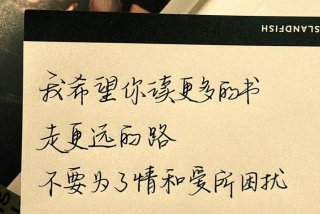 SLANDFISH
我希望你读更多的书
走更远的路
不要为了情和爱所困扰